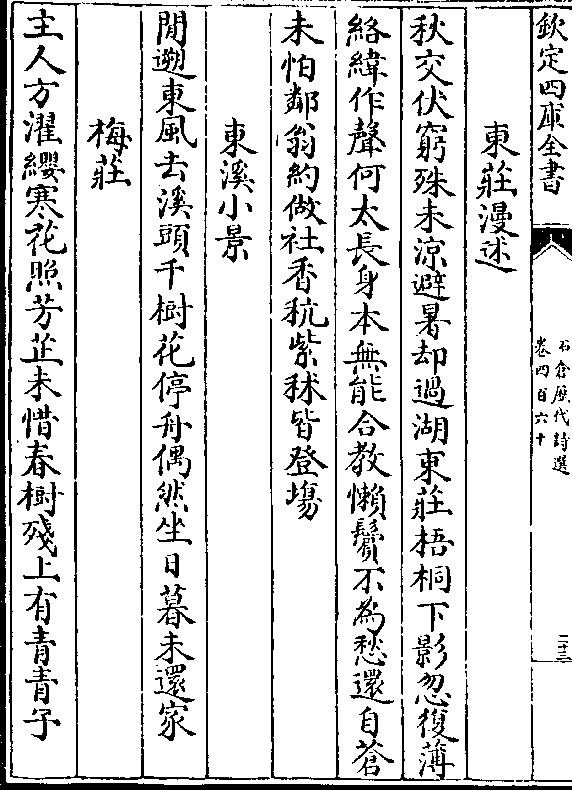 欽定四庫全書
石倉歷代詩選
卷四百六十
二十三
東莊漫述
秋交伏窮殊未涼避暑却過湖東莊梧桐下影忽復薄
絡緯作聲何太長身本無能合教懶鬢不為愁還自蒼
未怕鄰翁約做社香秔紫秫皆登塲
東溪小景
閒遡東風去溪頭千樹花停舟偶然坐日暮未還家
梅莊
主人方濯纓寒花照芳芷未惜春樹殘上有青青子